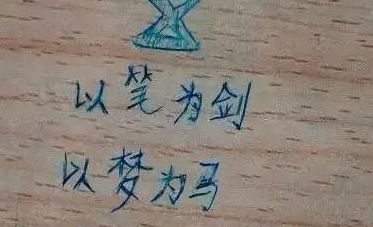 以笔为剑
以梦为马